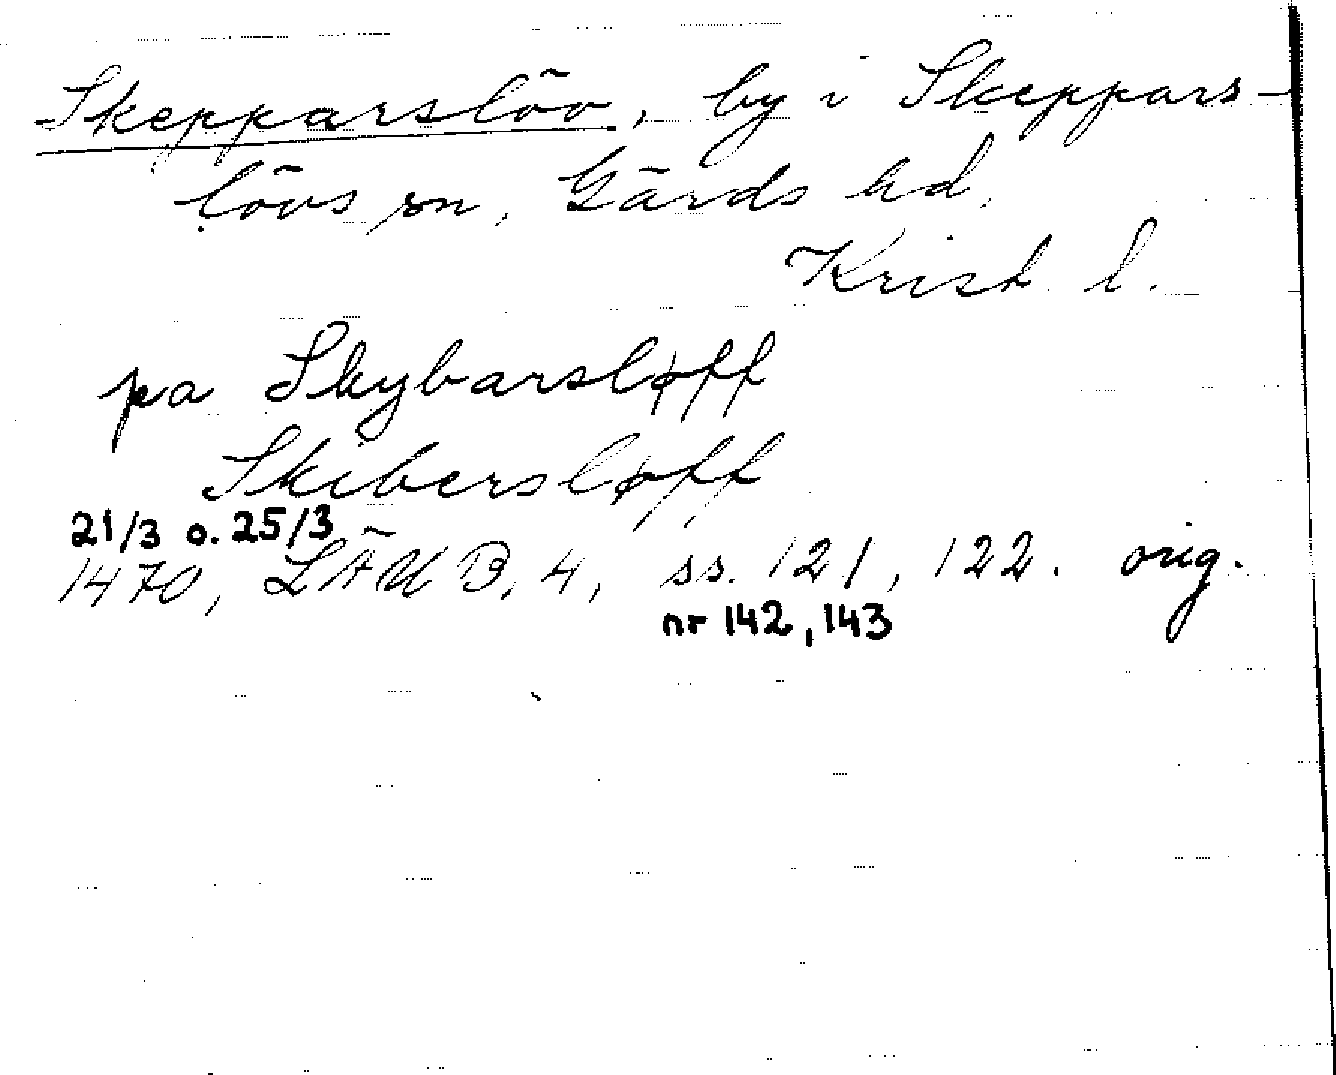 Skepparslöv, by i Skeppars-
lövs sn, Gärds hd,
Krist. l.
pa Skybarsløff
Skibersløff
21/3 o. 25/3
1470, LÄU B, 4, ss. 121, 122. orig.
nr 142, 143